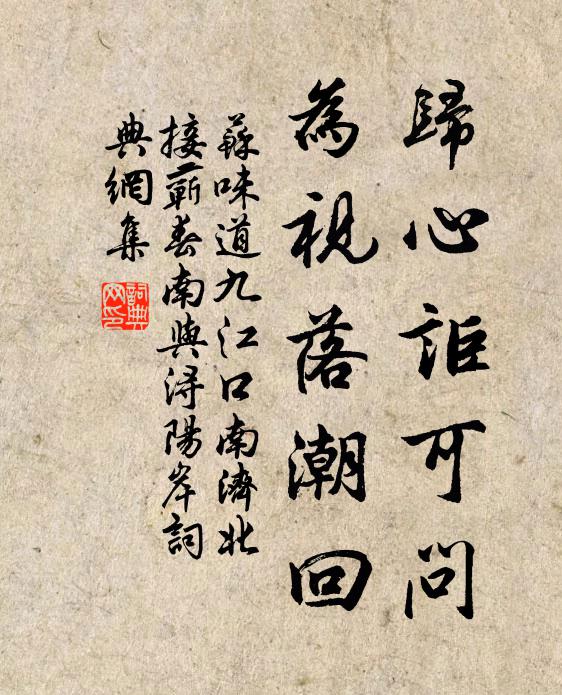 歸心詎可問
為視落潮回
蘇味道九江口南濟北
接蘄春南與潯陽岸詞
典網集
詞典
网印